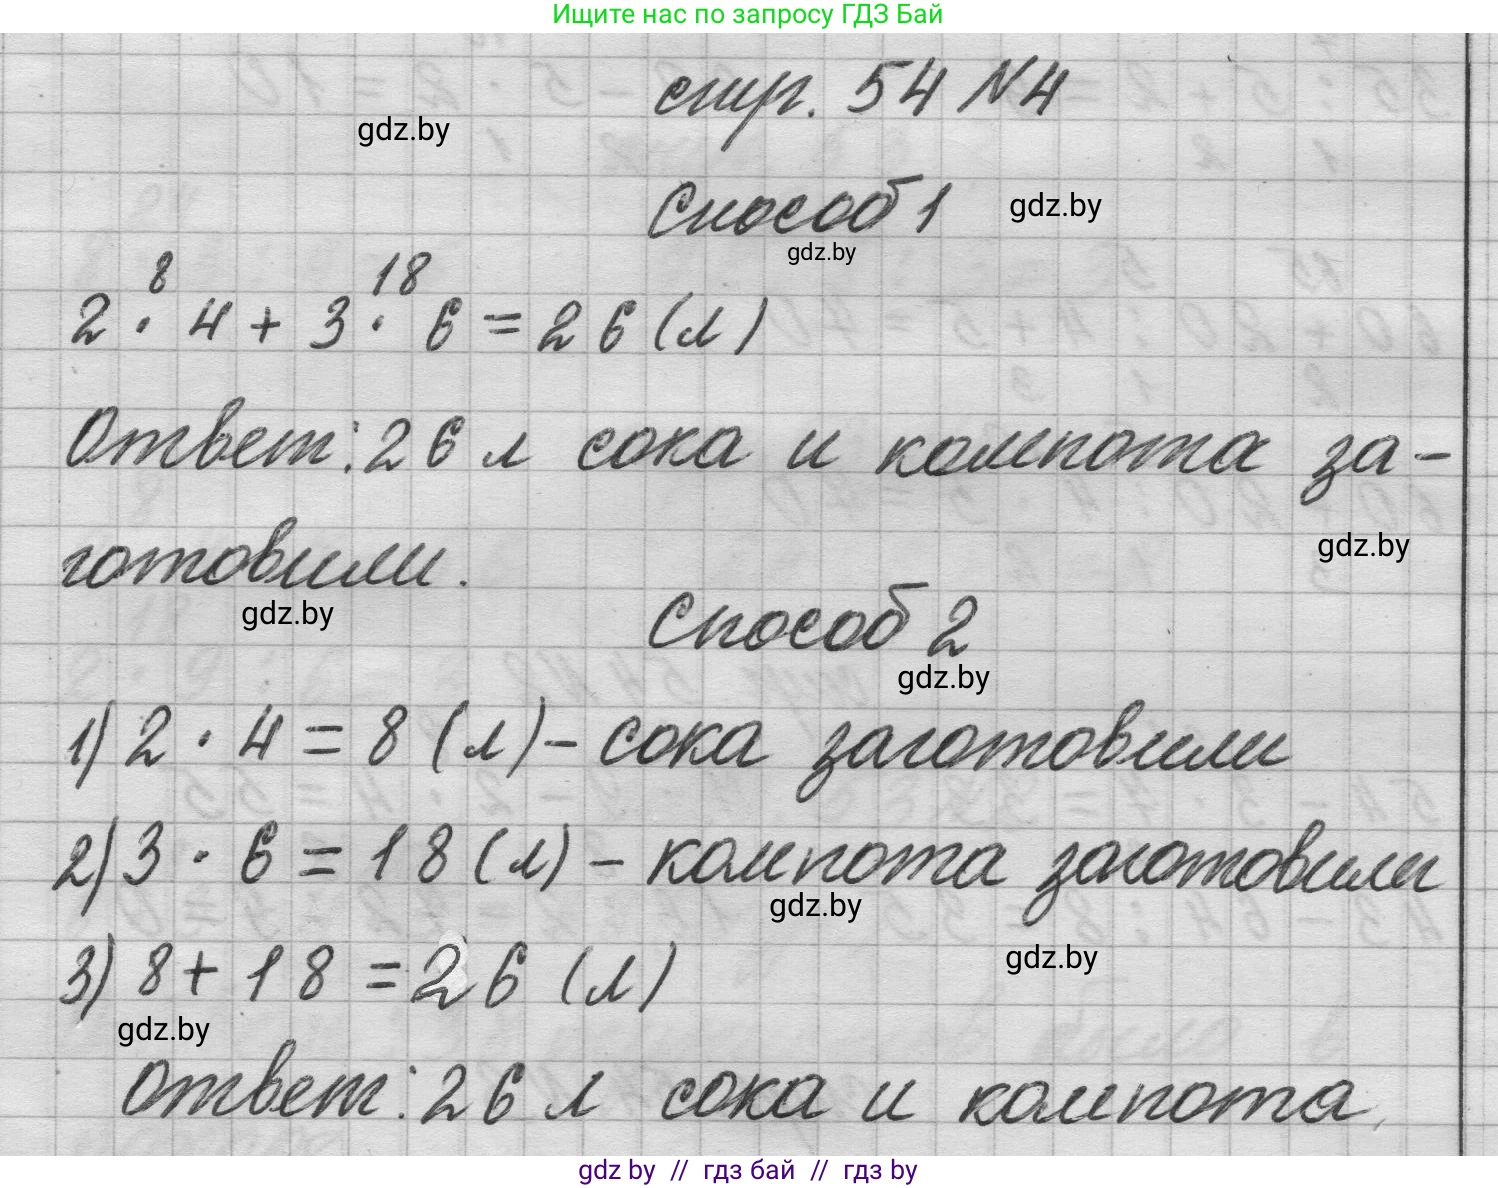 Ищите нас по запросу ГДЗ Бай
стр. 54 №4
gdz.by
Способ 1
gdz.by
gdz.by
8 18
2 · 4 + 3 · 6 = 26 (л)
Ответ: 26 л сока и компота за-
готовили.
gdz.by
gdz.by
Способ 2
gdz.by
1) 2 · 4 = 8 (л) – сока заготовили
2) 3 · 6 = 18 (л) – компота заготовили
gdz.by
3) 8 + 18 = 26 (л)
gdz.by
gdz.by
Ответ: 26 л сока и компота.
gdz by // гдз бай // гдз by